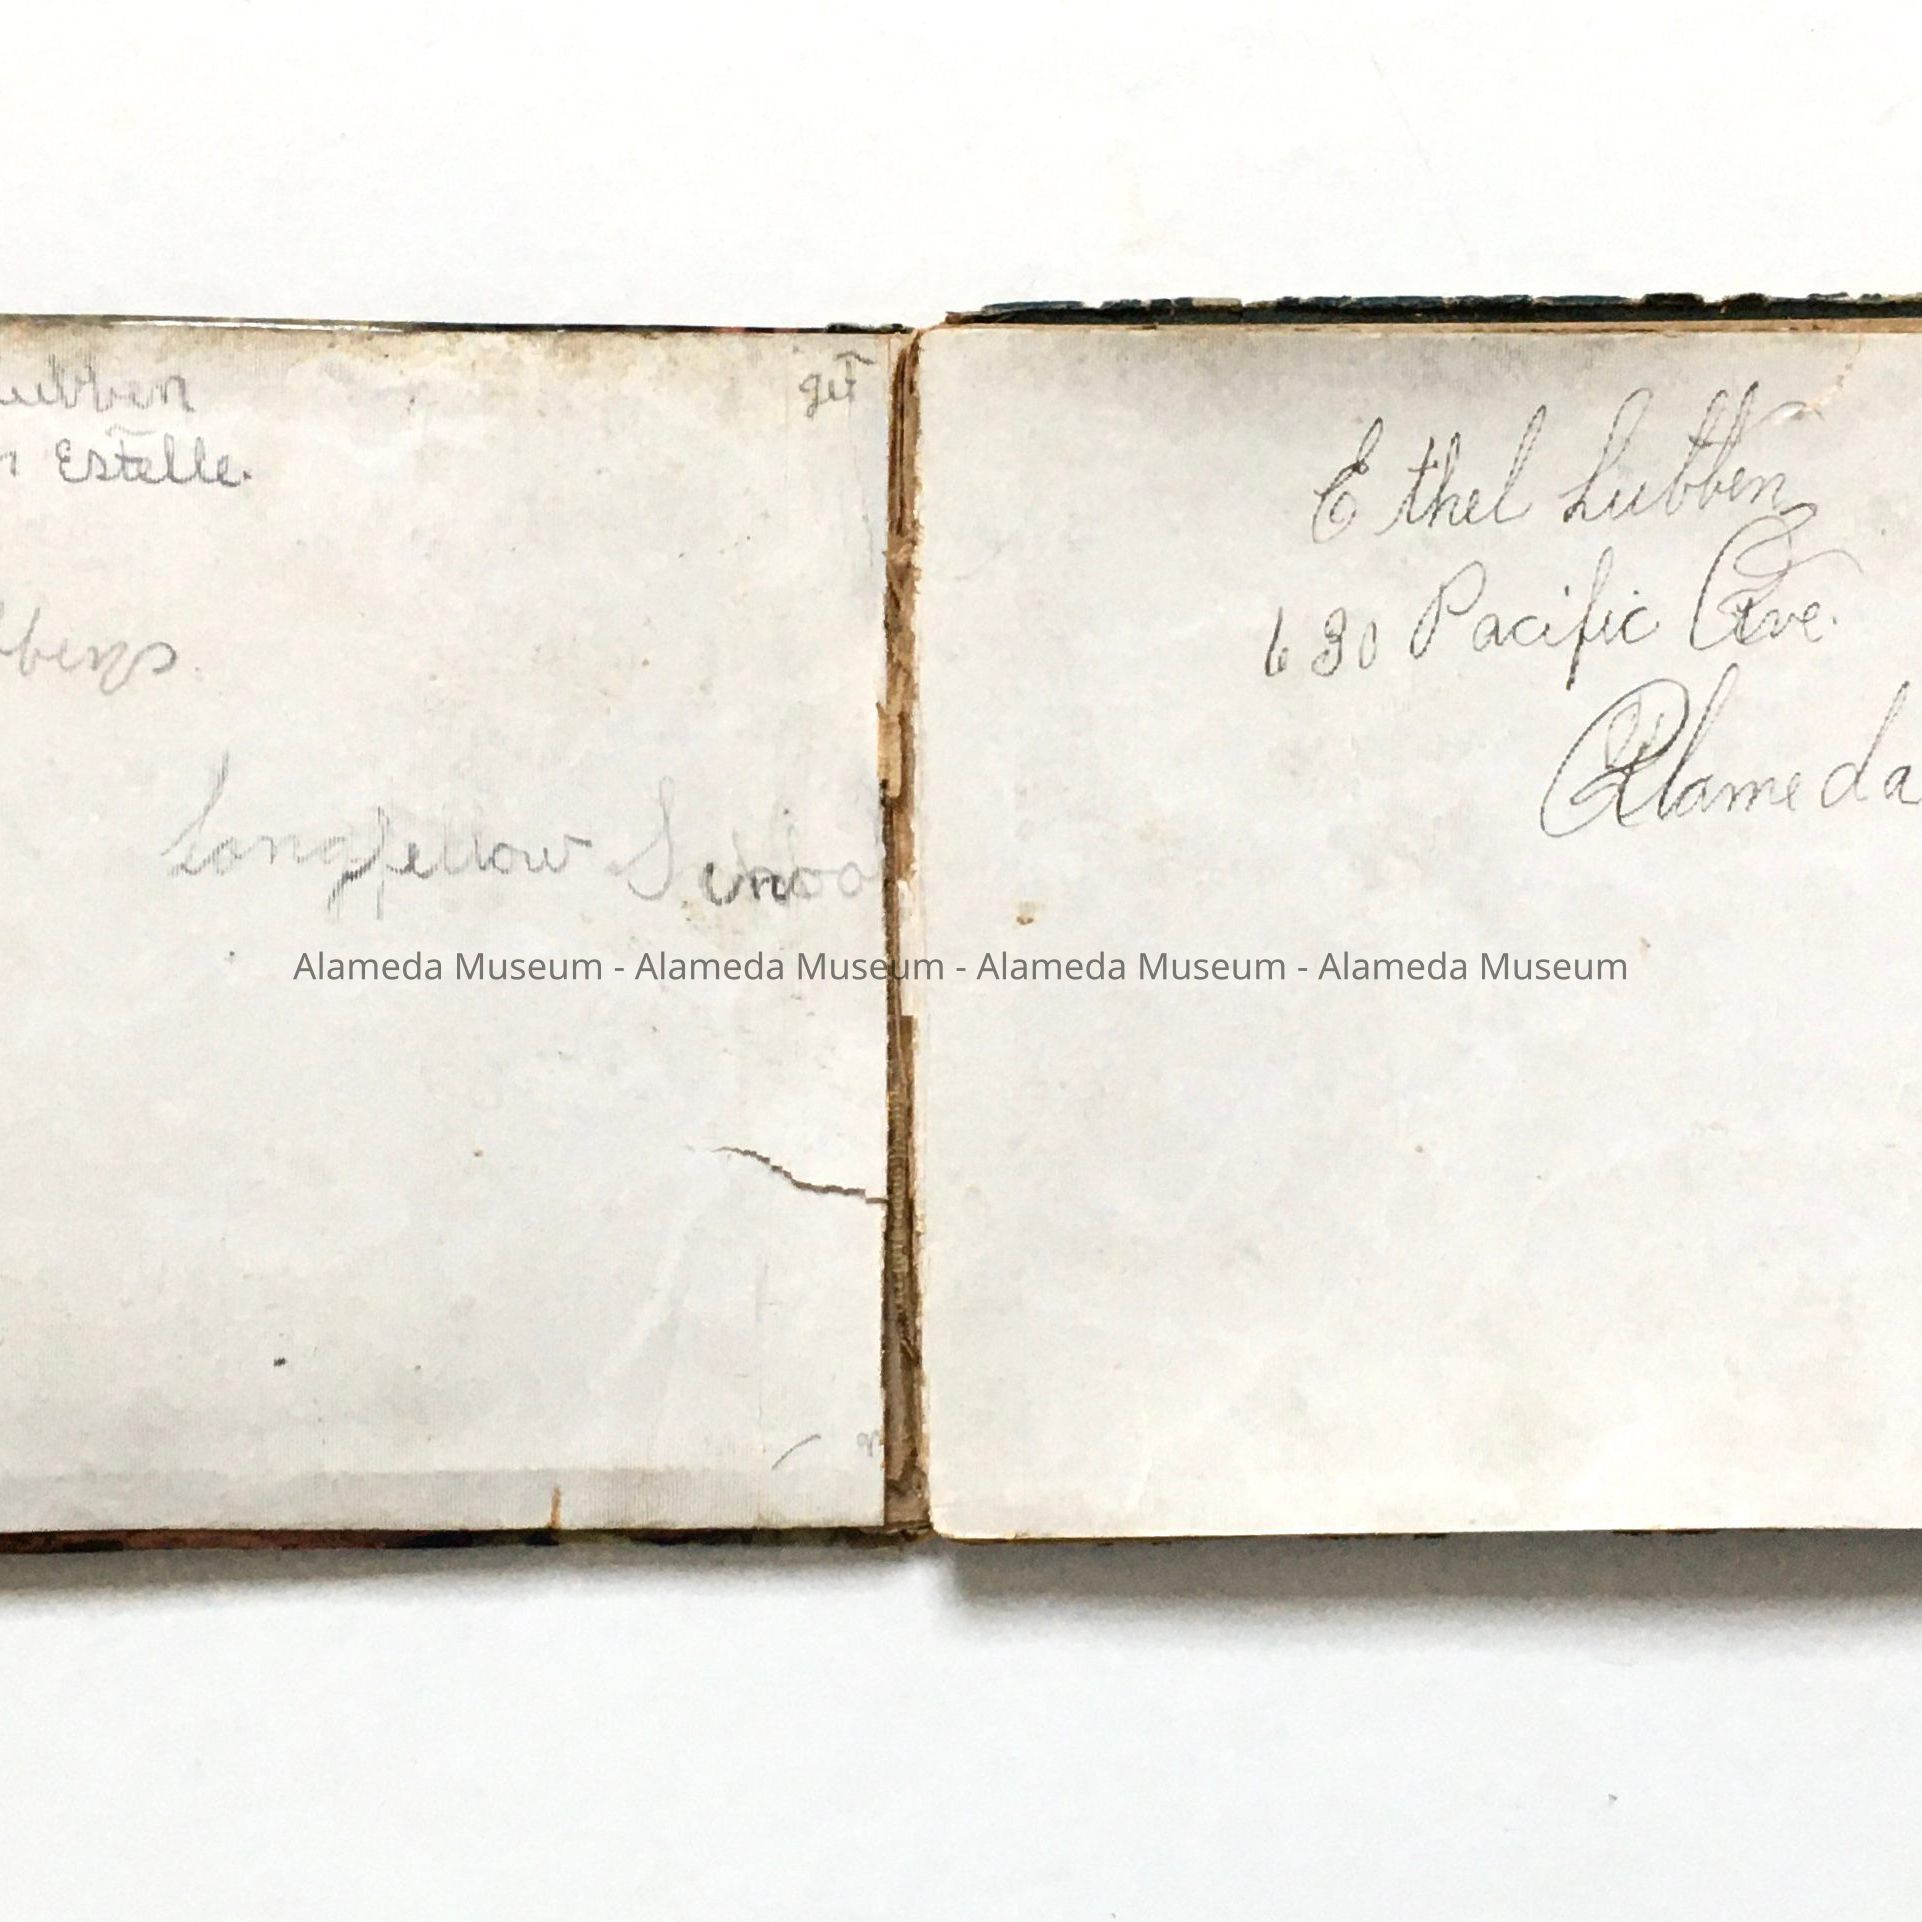 ubben
get
n Estelle.
bbens.
Longfellow School
Ethel Lubben
630 Pacific Ave.
Alameda
Alameda Museum - Alameda Museum - Alameda Museum - Alameda Museum